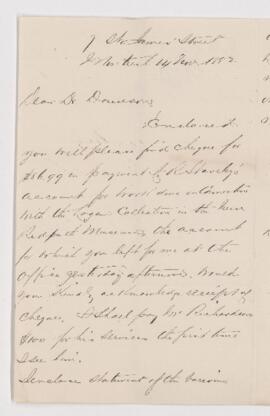 7 St. James Street
Montreal 14 Nov. 1882
Dear Dr Dawson,
Enclosed
you will please find cheque for
in payment of
account for work done in connection
with the Logan Collection in the new
Redpath Museum, the account
for which you left for me at the
office yesterday afternoon. Would
you kindly acknowledge receipt of
cheque. I shall pay Mr Richardson
for his services the first time
I see him.
I enclose statement of the various